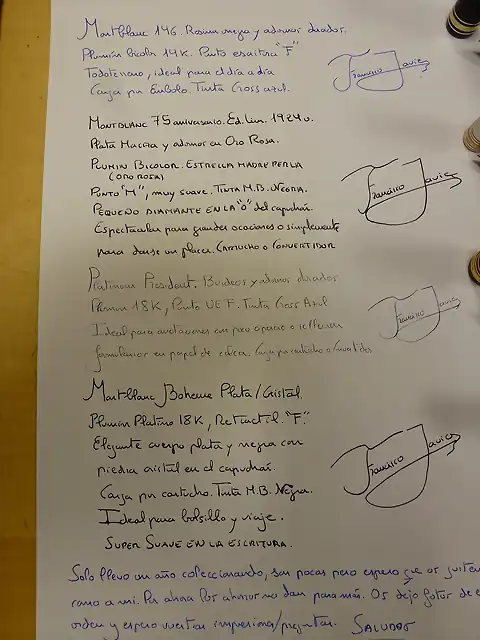 Montblanc 146. Resina negra y adornos dorados.
Plumín bicolor 14K. Punto escritura "F"
Todoterreno, ideal para el día a día
Carga por Émbolo. Tinta Cross azul.
Francisco Javier
MONTBLANC 75 aniversario. Ed. Lim. 1924 u.
Plata Maciza y adornos en Oro Rosa.
PLUMIN BICOLOR. ESTRELLA MADREPERLA
(ORO ROSA)
PUNTO "M", muy suave. TINTA M.B. NEGRA.
PEQUEÑO DIAMANTE EN LA "O" del capuchón.
Espectacular para grandes ocasiones o simplemente
para darse un placer. CARTUCHO O CONVERTIDOR
Francisco Javier
Platinum President. Burdeos y adornos dorados
Plumín 18K, Punto UEF. Tinta Cross Azul
Ideal para anotaciones con poco espacio o rellenar
formularios en papel de oficina. Carga por cartucho o Convertidor
Francisco Javier
Montblanc Boheme Plata/Cristal.
Plumín Platino 18K, Retractil. "F".
Elegante cuerpo plata y negro con
piedra cristal en el capuchón.
Carga por cartucho. Tinta M.B. Negra.
Ideal para bolsillo y viaje.
SUPER SUAVE EN LA ESCRITURA.
Francisco Javier
Solo llevo un año coleccionando, son pocas pero espero que os gusten
como a mi. Por ahora no dan para más. Os dejo fotos de
orden y espero vuestras impresiones/preguntas. SALUDOS